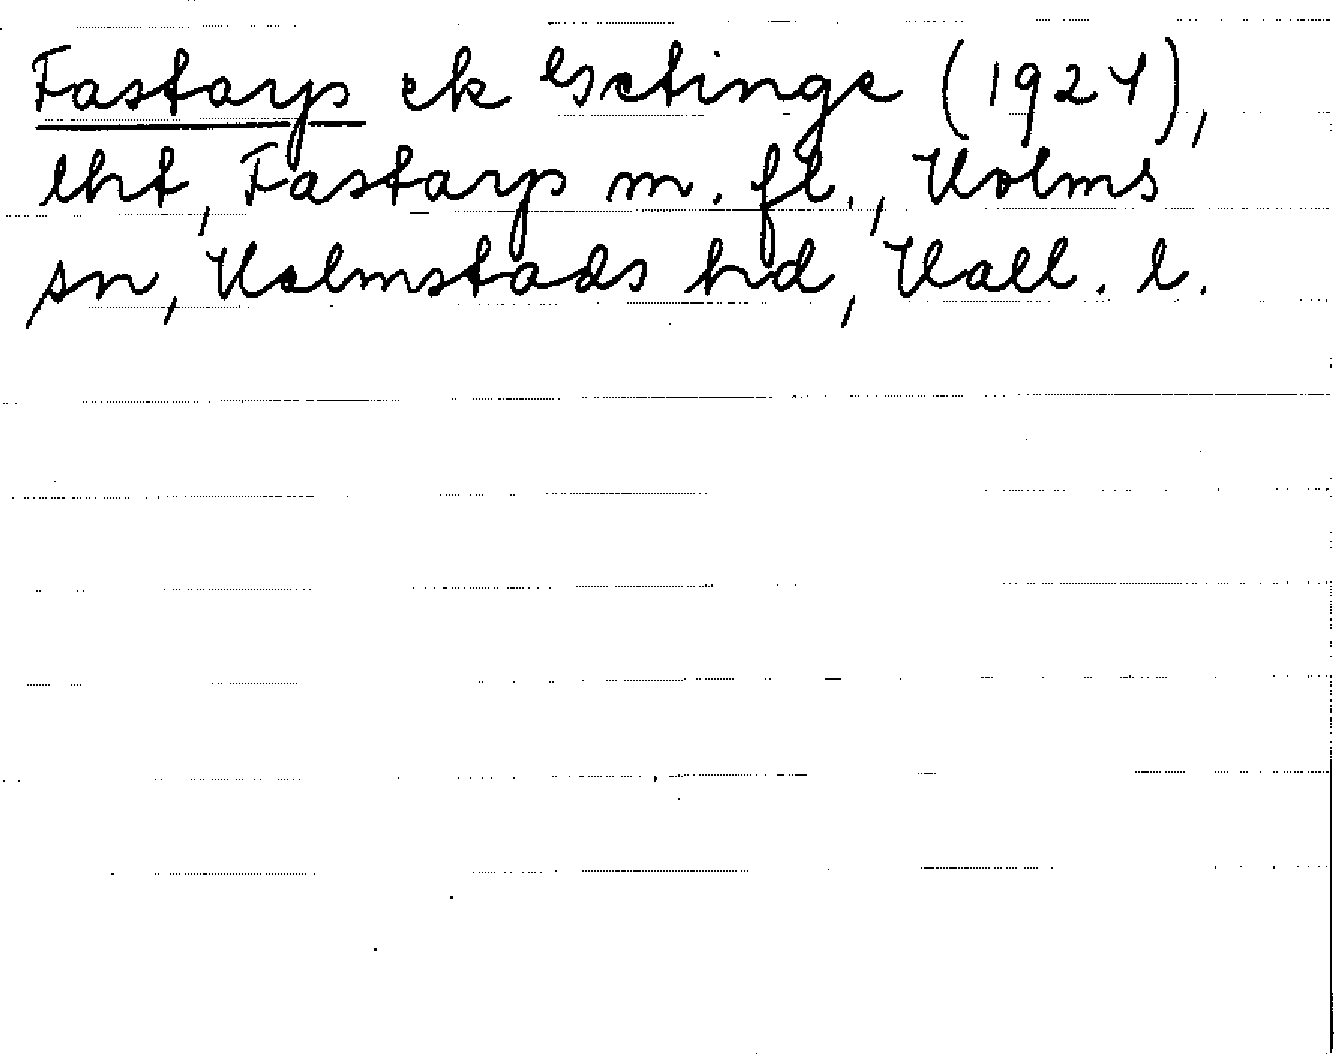 Fastarp ek Getinge (1924),
lht, Fastarp m. fl., Holms
sn, Halmstads hd, Hall. l.